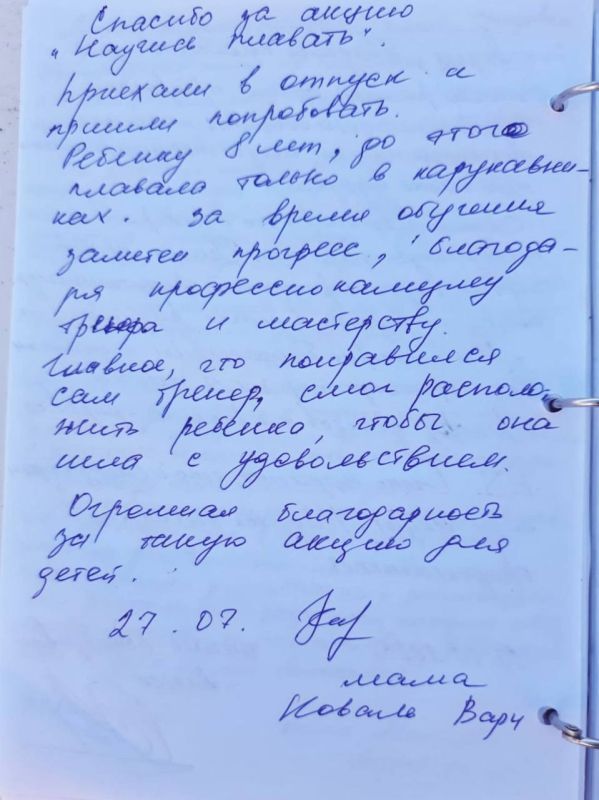 Спасибо за акцию
"Научись плавать".
Приехали в отпуск и
пришли попробовать.
Ребенку 8 лет, до этого
плавала только в нарукавни-
ках. За время обучения
заметен прогресс, благода-
ря профессионализму
тренера и мастерству.
Главное, что понравился
сам тренер, смог располо-
жить ребенка, чтобы она
шла с удовольствием.
Огромная благодарность
за такую акцию для
детей.
27.07.
мама
Коваль Вари